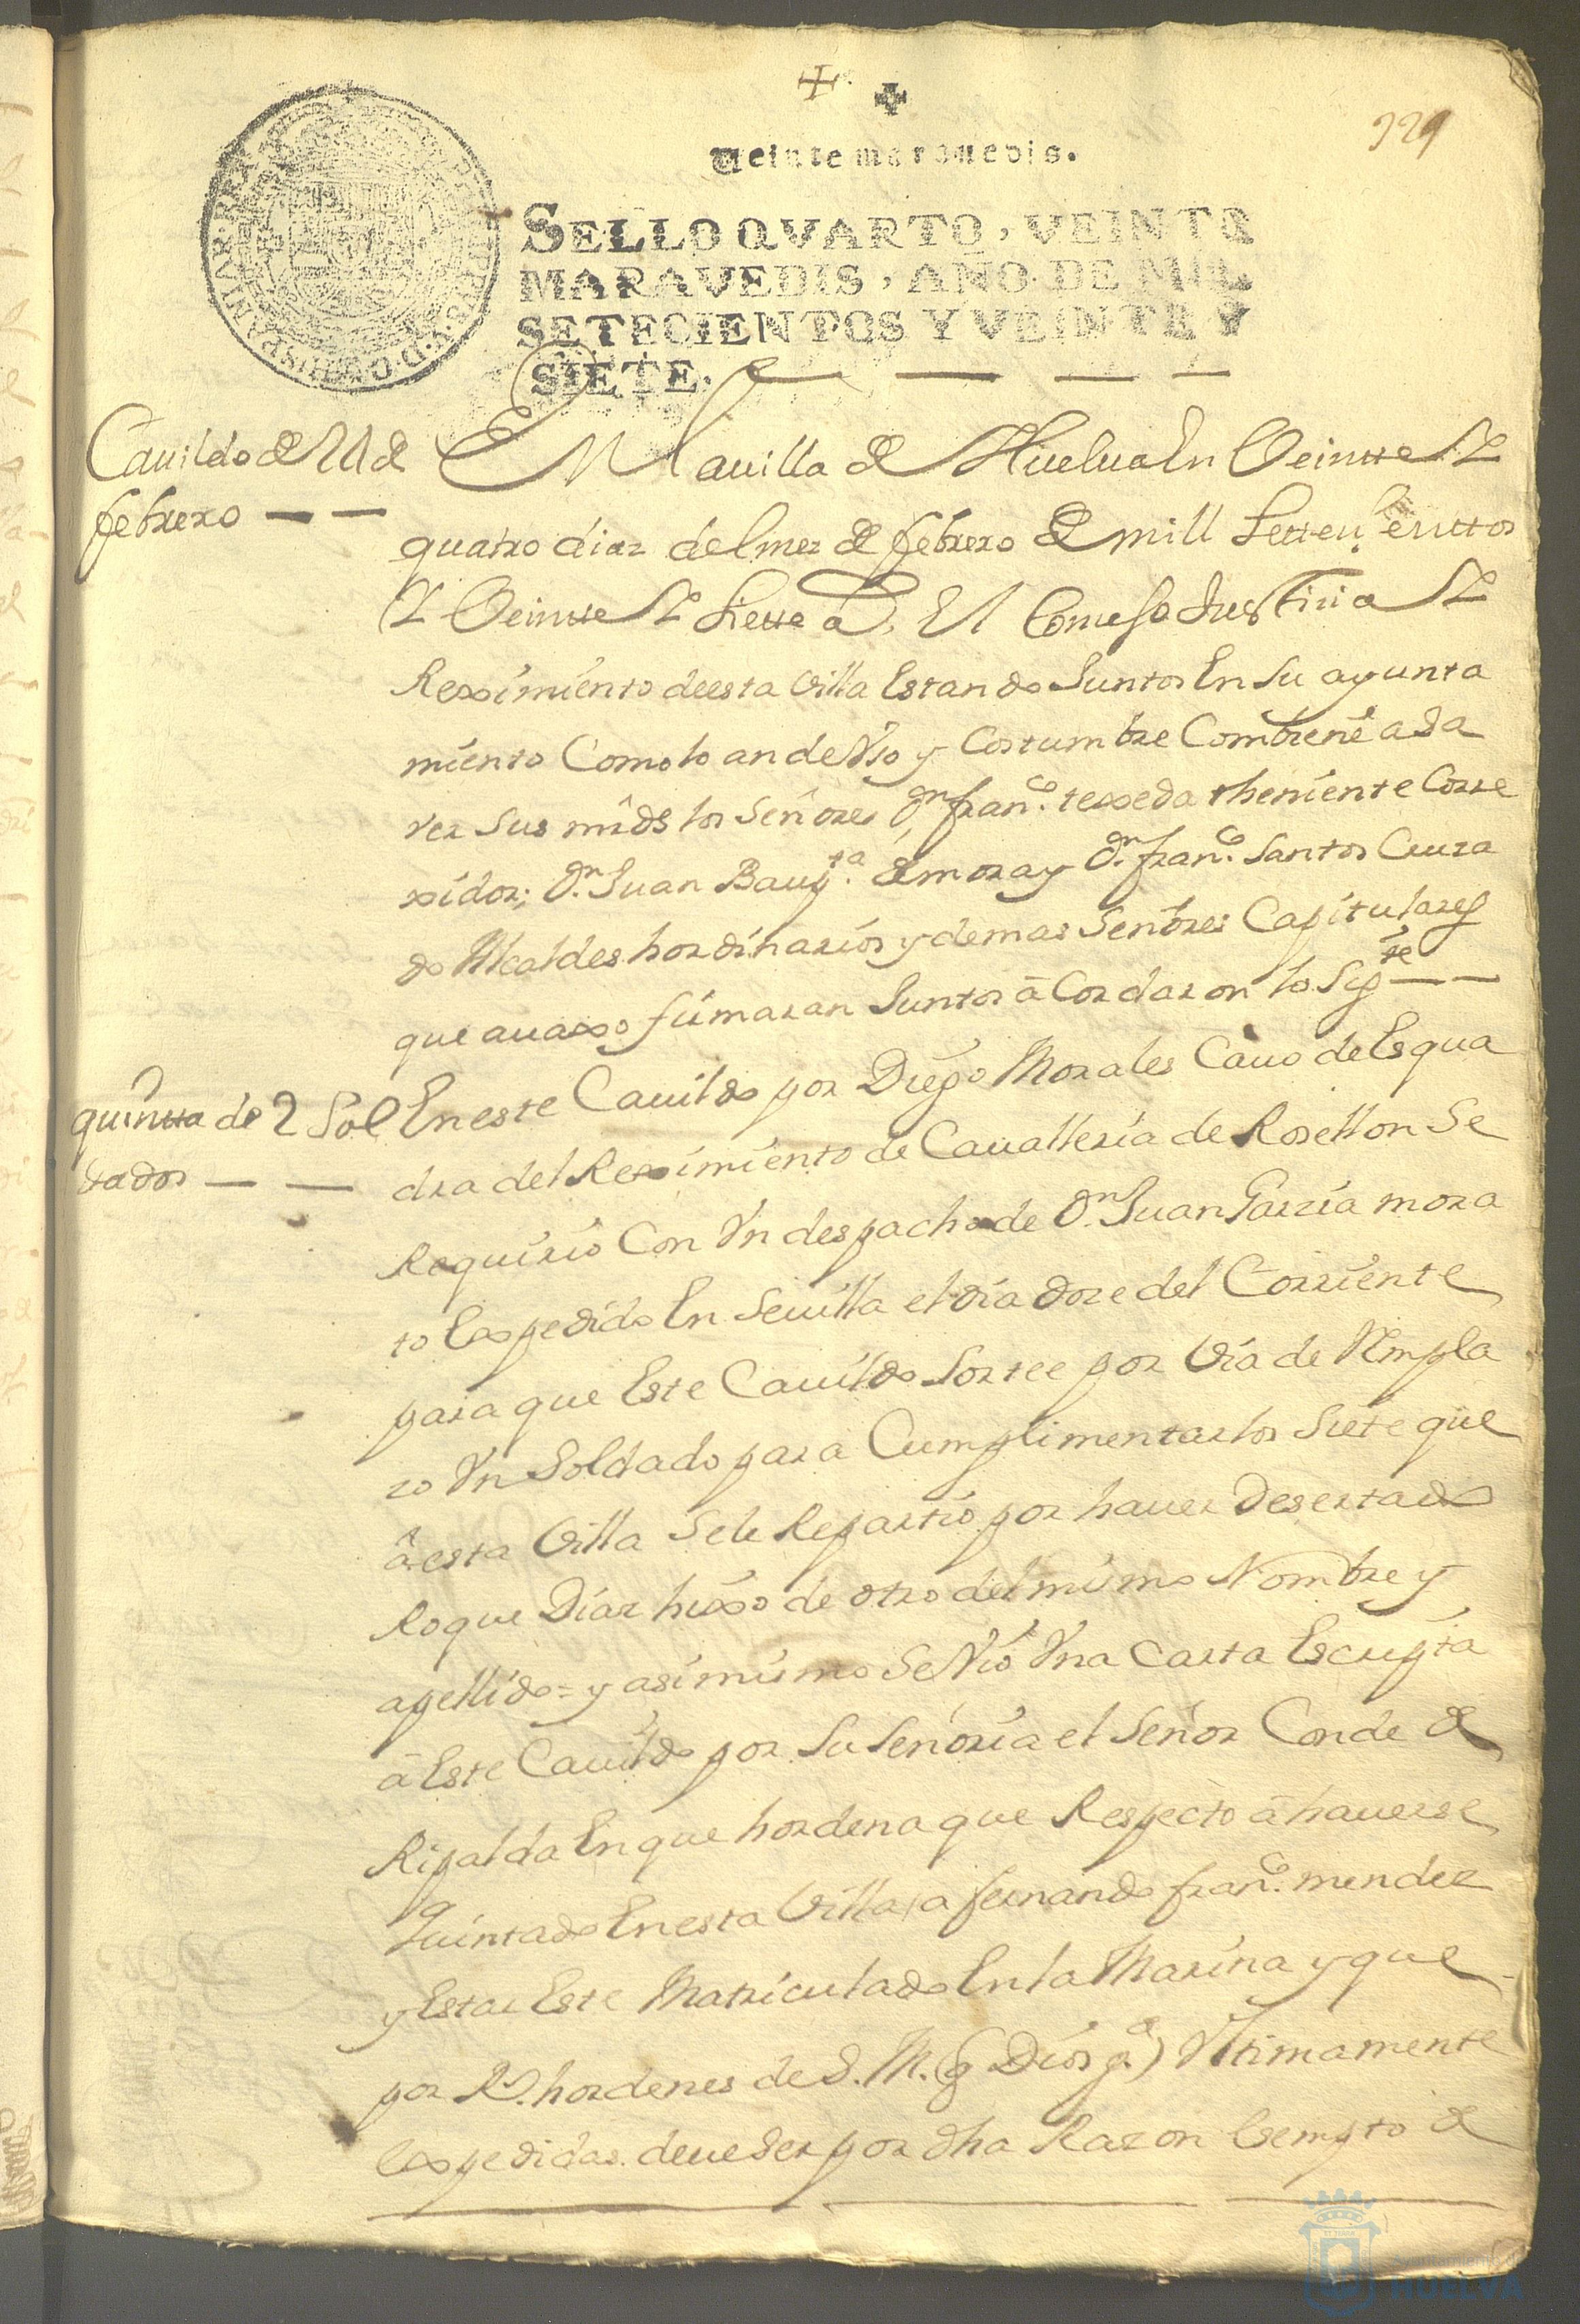 329
Veinte maravedis.
SELLO QVARTO, VEINTE
MARAVEDIS, AÑO DE MIL
SETECIENTOS Y VEINTE Y
SIETE.
Cauildo de 24 de
febrero
En la uilla de Huelua En Veintte Y
quatro dias del mes de febrero de mill Settezientos
Y Veintte Y Siette a.s El Consejo Justizia Y
Reximiento deesta Villa Estando Juntos En Su ayunta
miento Como lo an de Vso y Costumbre Combiene a sa
ver Sus mrds los Señores Dn. franco. texeda theniente Corre
xidor; Dn. Juan Baupta. de mora y Dn. franco. Santos Quza
do Alcaldes hordinarios y demas Señores Capitulares
que auaxo firmaran Juntos âCordaron lo Sigte
quintta de 2 Sol
dados
En este Cauildo por Diego Morales Cauo de Esqua
dra del Reximiento de Cauallería de Rosellon Se
Requirio Con Vn despacho de Dn. Juan Garzía mora
to Expedido En Seuilla el día doze del Corriente
para que Este Cauildo Sortee por Vía de Rempla
zo Vn Soldado para Cumplimentar los Siete que
â esta Villa Se le Repartio por hauer Desertado
Roque Díaz hixo de otro del mismo Nombre y
apellido = y asimismo Se Vio Vna Carta Escripta
â Este Cauildo por Su Señoría el Señor Conde de
Ripalda En que hordena que Respecto â hauerse
quintado En esta Villa a fernando franco. mendez
y Estar Este Matriculado En la Marina y que
por Rs. hordenes de S. M. (q Dios ge.) Vltimamente
Expedidas deue Ser por dha Razon Exempto de
HUELVA